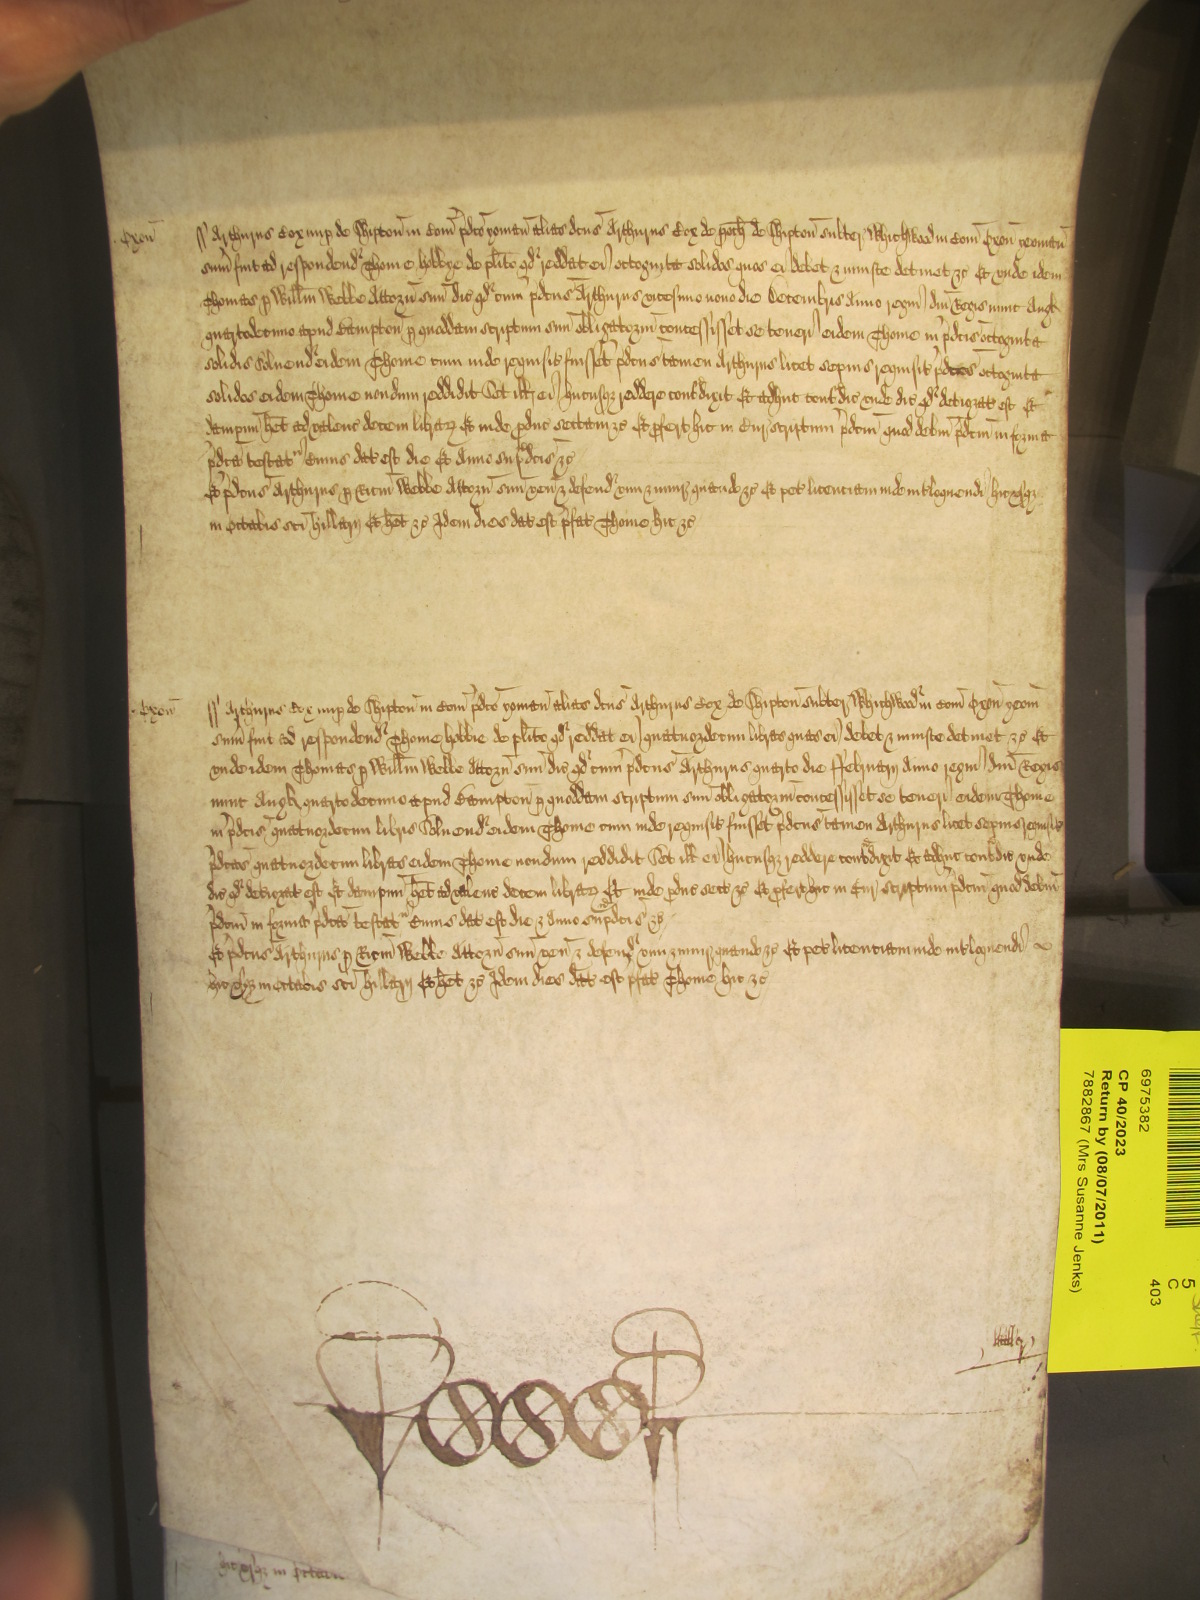 Oxon
ss Arthurus Cox nup de Shipton in Com p̄dco yoman alias dcus Arthurus Cox de poch de Shipton subter Whichwood in Com Oxon yeoman
sum fuit ad respondend Thome hobbye de plito qd reddat ei octoginta solidos quos ei debet & iniuste detinet &c Et unde idem
Thomas p Willm Welle Attorn suu dic qd cum p̄dcus Arthurus vicesimo nono die Decembris Anno regni dni Regis nunc Angl
quartodecimo apud Bampton p quoddam scriptum suu obligatorm concessisset se teneri eidem Thome in p̄dcis octoginta
solidis Solvend eidem Thome cum inde requisit fuisset p̄dcus tamen Arthurus licet sepius requisit p̄dcos octoginta
solidos eidem Thome nondum reddidit Set ill ei hucusq reddere contradixit Et adhuc contradic unde dic qd deteriorat est Et
dampnu het ad valenc decem librar Et inde produc sectam &c Et profert hic in Cur scriptum p̄dcm quod debm p̄dcm in forma
p̄dca testat Cuius dat est die Et Anno sup̄dcis &c
Et p̄dcus Arthurus p Ricm Welle Attorn suu ven & defend vim & iniur quando &c Et pet licenciam inde int̄loquendi hic usq
in Octabis sci hillarij Et het &c Idem dies dat est p̄fat Thome hic &c
Oxon
ss Arthurus Cox nup de Shipton in Com p̄dco yoman alias dcus Arthurus Cox de Shipton subter Whichwod in Com Oxon yeom
sum fuit ad respondend Thome hobbie de plito qd reddat ei quatuordecim libras quas ei debet & iniuste detinet &c Et
unde idem Thomas p Willm Welle Attorn suu dic qd cum p̄dcus Arthurus quarto die ffebruarij Anno regni dni Regis
nunc Angl quartodecimo apud Bampton p quoddam scriptum suu obligatorm concessisset se teneri eidem Thome
in p̄dcis quatuordecim libris Solvend eidem Thome cum inde requisit fuisset p̄dcus tamen Arthurus licet sepius requisit
p̄dcas quatuordecim libras eidem Thome nondum reddidit Set ill ei hucusq reddere contradixit Et adhuc contradic unde
dic qd deteriorat est Et dampnu het ad valenc decem librar Et inde produc sect &c Et profert hic in Cur scriptum p̄dcm quod debm
p̄dcm in forma p̄dca testat Cuius dat est die & Anno sup̄dcis &c
Et p̄dcus Arthurus p Ricm Welle Attorn suu ven & defend vim & iniur quando &c Et pet licenciam inde int̄loquendi
hic usq in Octabis sci hillarij Et het &c Idem dies dat est p̄fat Thome hic &c
hic usq in
6975382
CP 40/2023
Return by (08/07/2011)
7882867 (Mrs Susanne Jenks)
5
C
403